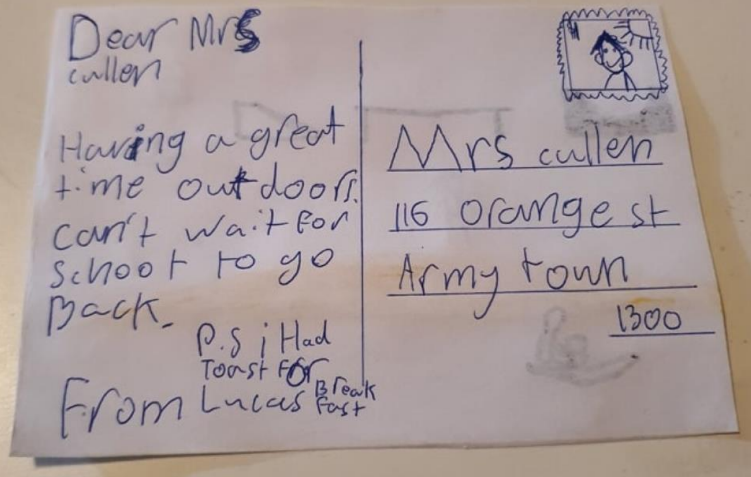 Dear Mrs
cullen
Having a great
time outdoors.
can't wait for
school to go
Back.
P.S i Had
Toast For
Break
fast
From Lucas
Mrs cullen
116 orange st
Army town
1300